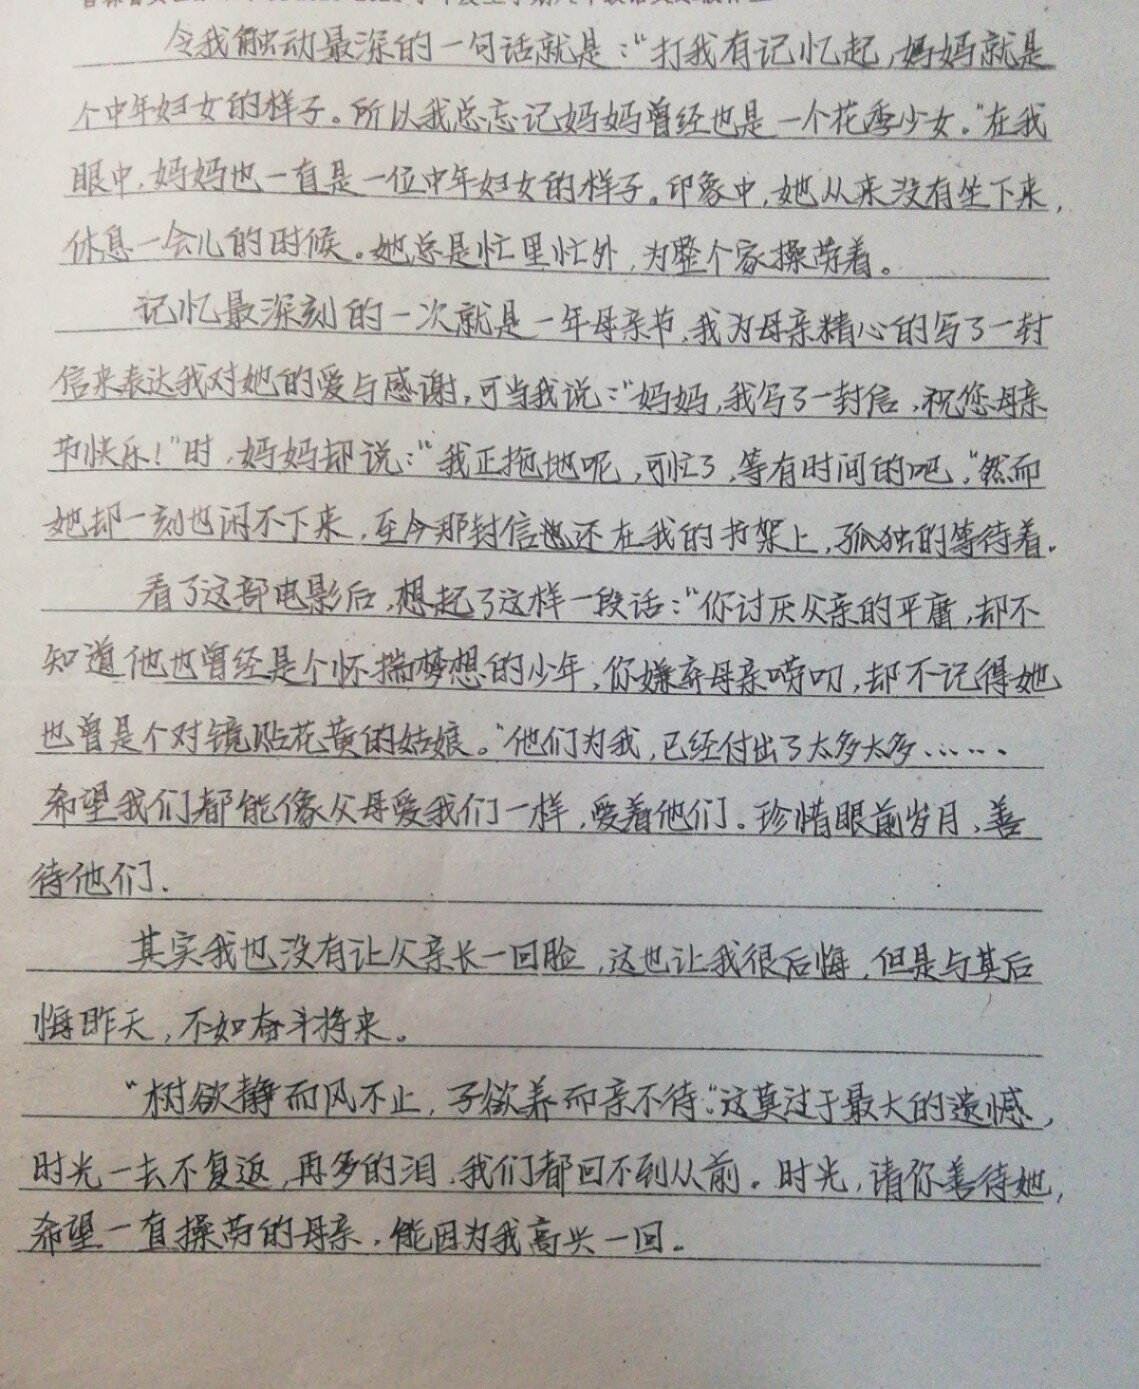 令我触动最深的一句话就是:“打我有记忆起,妈妈就是
个中年妇女的样子。所以我总忘记妈妈曾经也是一个花季少女。”在我
眼中,妈妈也一直是一位中年妇女的样子。印象中,她从来没有坐下来,
休息一会儿的时候。她总是忙里忙外,为整个家操劳着。
记忆最深刻的一次就是一年母亲节,我为母亲精心的写了一封
信来表达我对她的爱与感谢,可当我说:“妈妈,我写了一封信,祝您母亲
节快乐!”时,妈妈却说:“我正拖地呢,可忙了,等有时间的吧。”然而
她却一刻也闲不下来,至今那封信还在我的书架上,孤独的等待着.
看了这部电影后,想起了这样一段话:“你讨厌父亲的平庸,却不
知道他也曾经是个怀揣梦想的少年,你嫌弃母亲唠叨,却不记得她
也曾是个对镜贴花黄的姑娘。”他们为我,已经付出了太多太多……
希望我们都能像父母爱我们一样,爱着他们。珍惜眼前岁月,善
待他们.
其实我也没有让父亲长一回脸,这也让我很后悔,但是与其后
悔昨天,不如奋斗将来。
“树欲静而风不止,子欲养而亲不待。”这莫过于最大的遗憾,
时光一去不复返,再多的泪,我们都回不到从前。时光,请你善待她,
希望一直操劳的母亲,能因为我高兴一回。